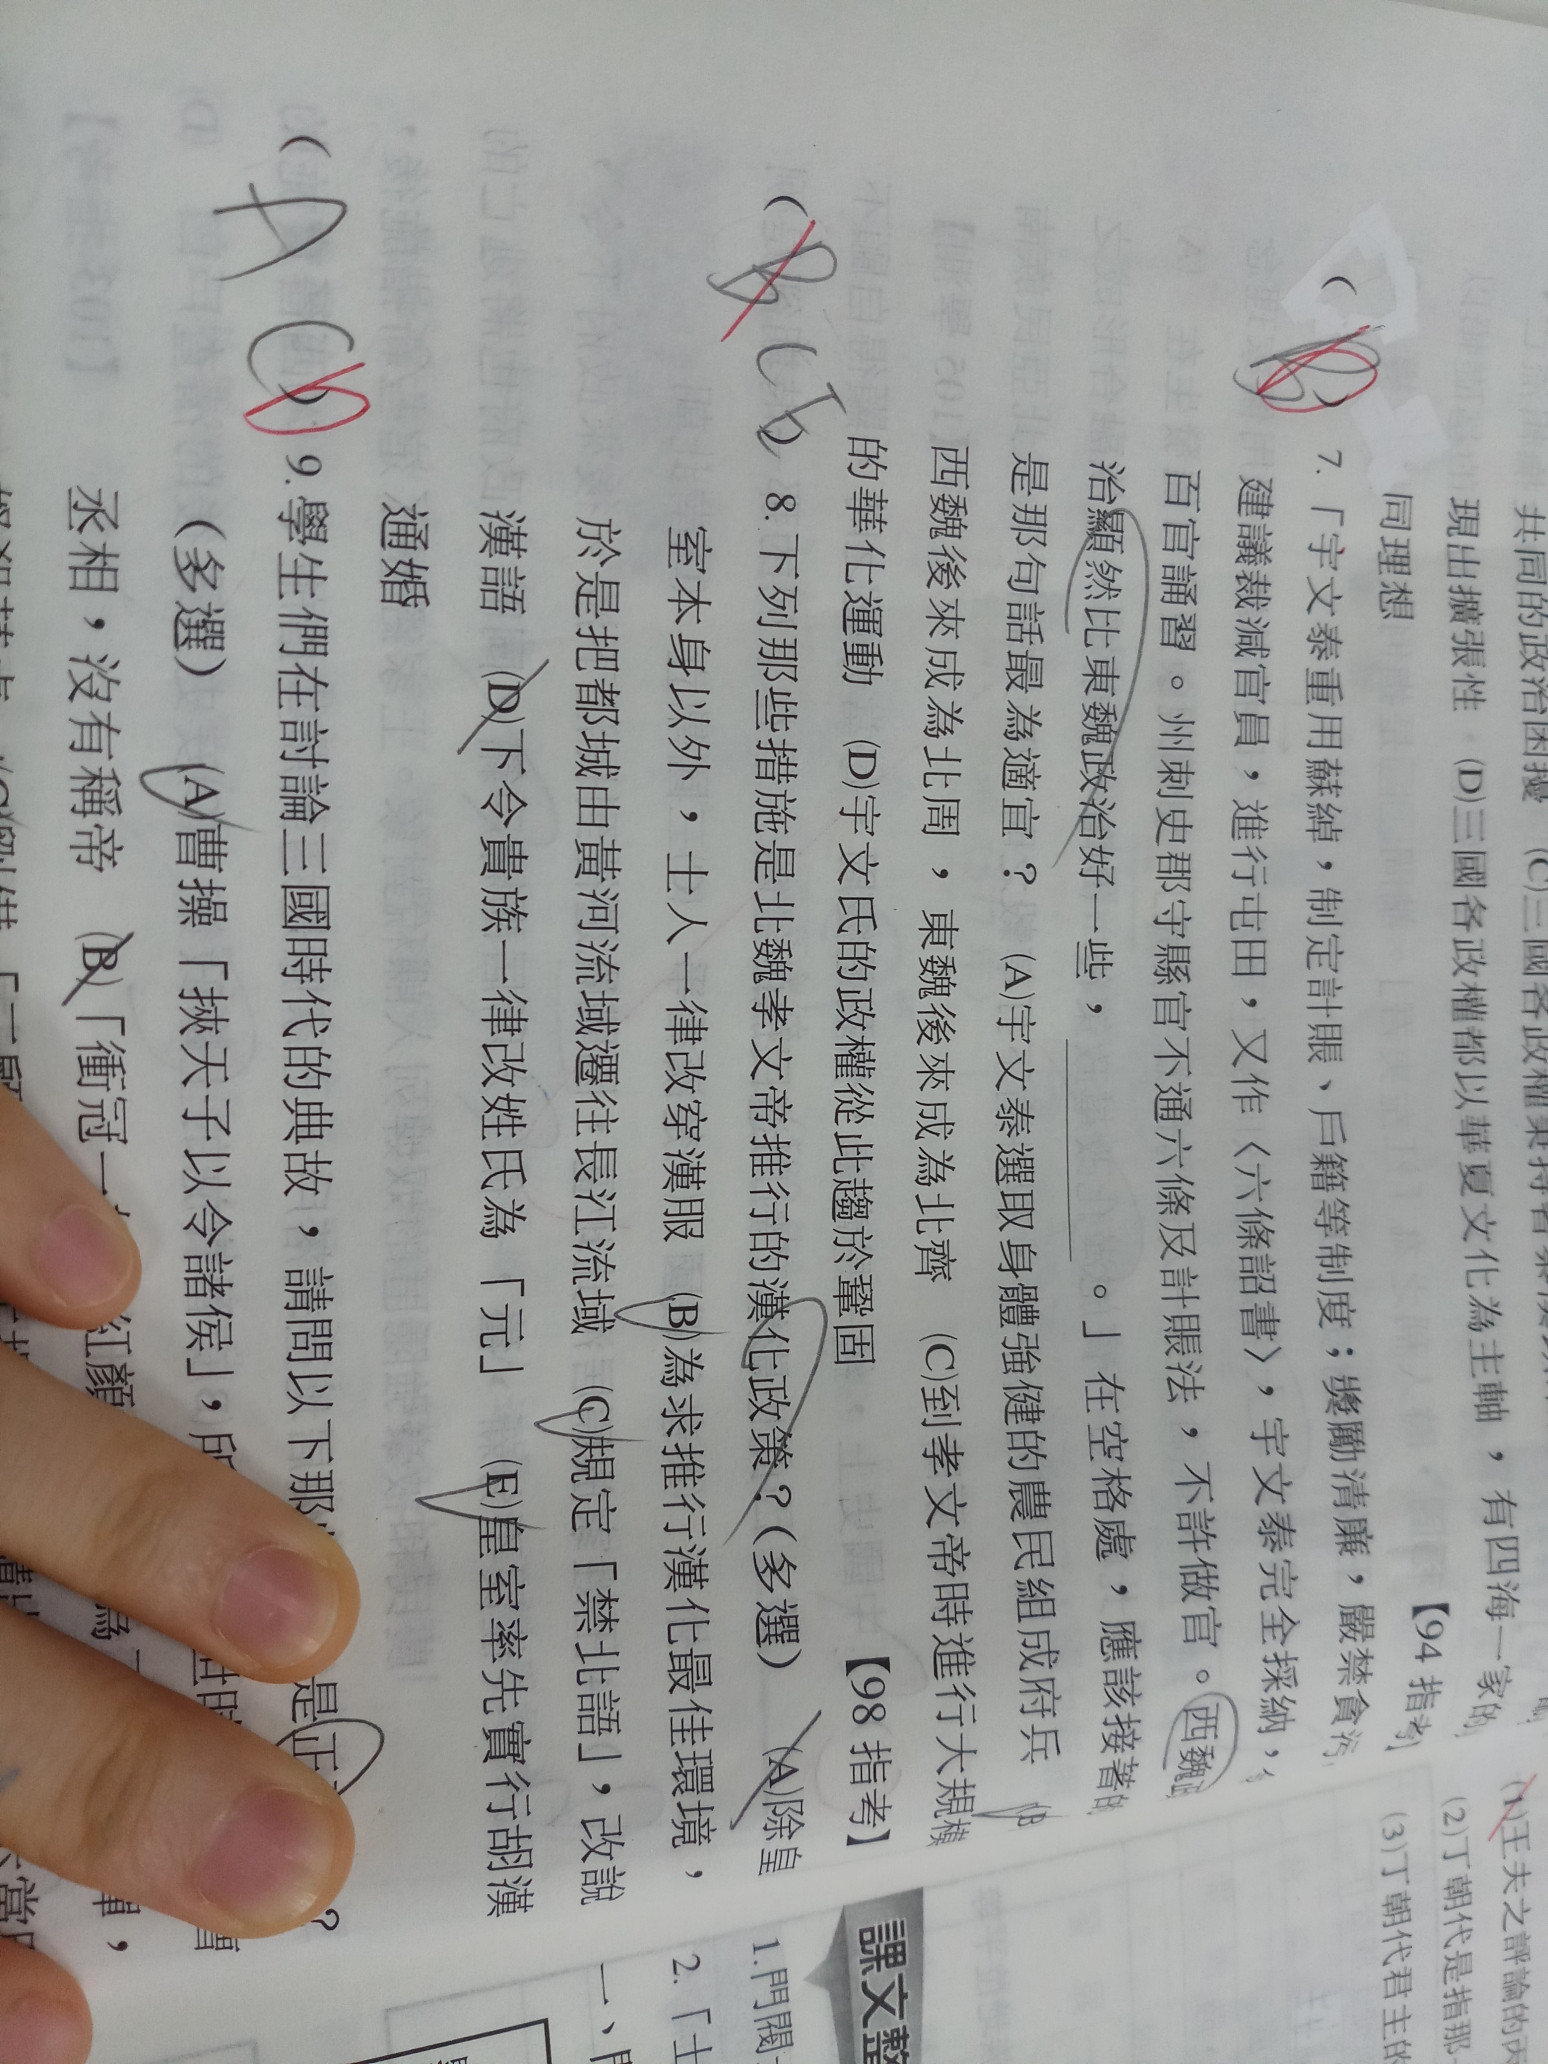 共同的政治困擾 (C)三國各政權秉持者
現出擴張性 (D)三國各政權都以華夏文化為主軸，有四海一家的
同理想 【94 指考】
( B ) 7.「宇文泰重用蘇綽，制定計賬、戶籍等制度；獎勵清廉，嚴禁貪污，
建議裁減官員，進行屯田，又作〈六條詔書〉，宇文泰完全採納，
百官誦習。州刺史郡守縣官不通六條及計賬法，不許做官。西魏政
治顯然比東魏政治好一些，＿＿＿。」在空格處，應該接著的
是那句話最為適宜？ (A)宇文泰選取身體強健的農民組成府兵 (B)
西魏後來成為北周，東魏後來成為北齊 (C)到孝文帝時進行大規模
的華化運動 (D)宇文氏的政權從此趨於鞏固 【98 指考】
( B C E ) 8.下列那些措施是北魏孝文帝推行的漢化政策？(多選) (A)除皇
室本身以外，士人一律改穿漢服 (B)為求推行漢化最佳環境，
於是把都城由黃河流域遷往長江流域 (C)規定「禁北語」，改說
漢語 (D)下令貴族一律改姓氏為「元」 (E)皇室率先實行胡漢
通婚
( A C D ) 9.學生們在討論三國時代的典故，請問以下那 是正 ？
(多選) (A)曹操「挾天子以令諸侯」，
丞相，沒有稱帝 (B)「衝冠一 紅顏
課文整
1.門閥
2.「士
一、
(1)王夫之評論的丙
(2)丁朝代是指那
(3)丁朝代君主的